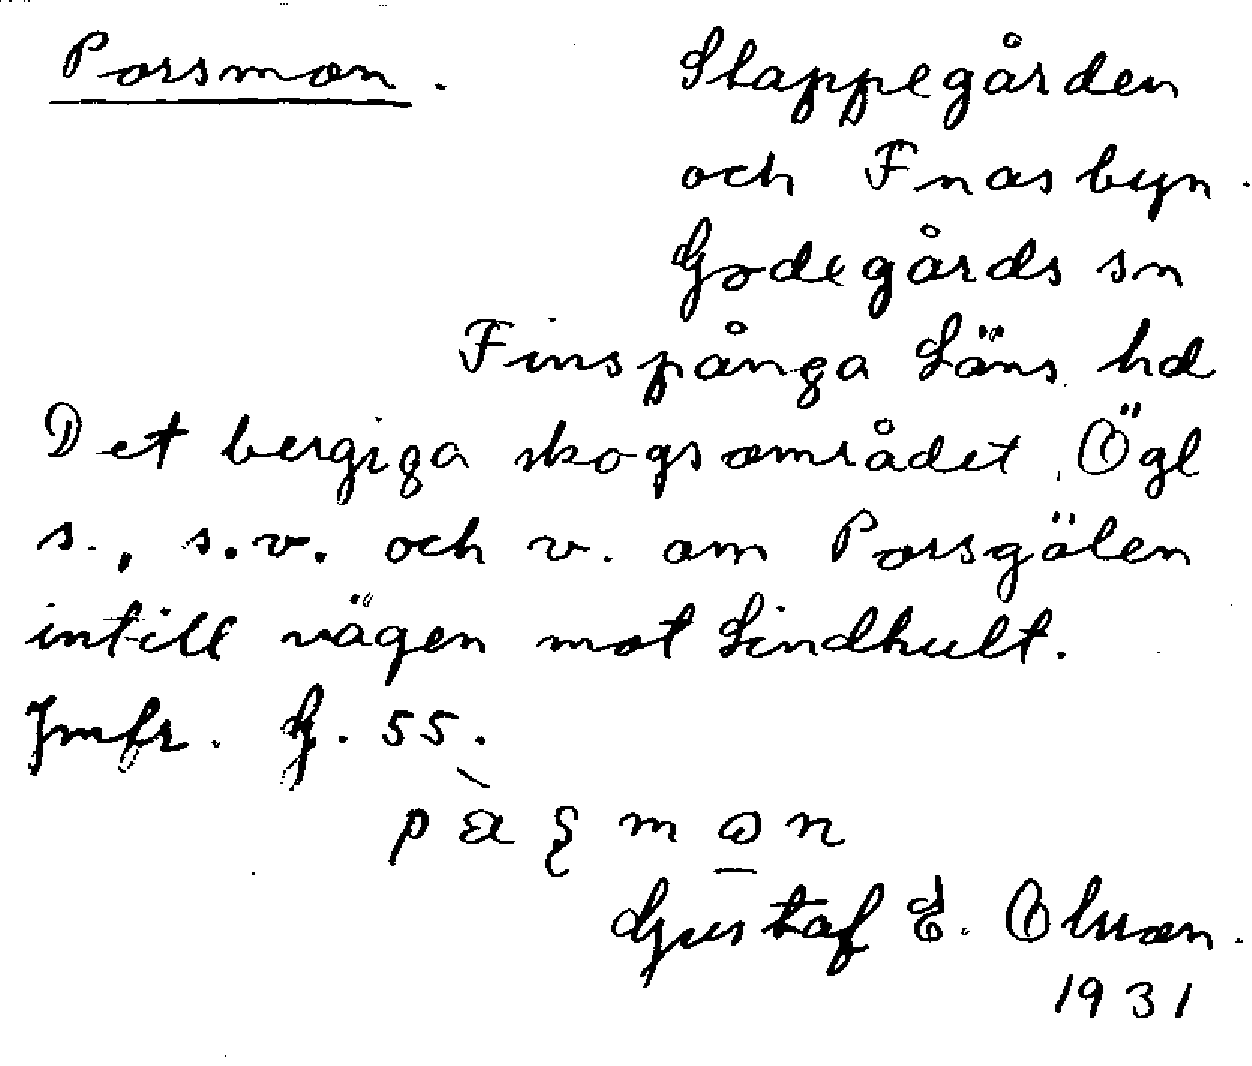 Porsmon. Slappegården
och Fnasbyn.
Godegårds sn
Finspånga Läns hd
Det bergiga skogsområdet Ögl
s., s.v. och v. om Porsgölen
intill vägen mot Lindhult.
Jmfr. G. 55.
Gustaf E. Olsson.
1931